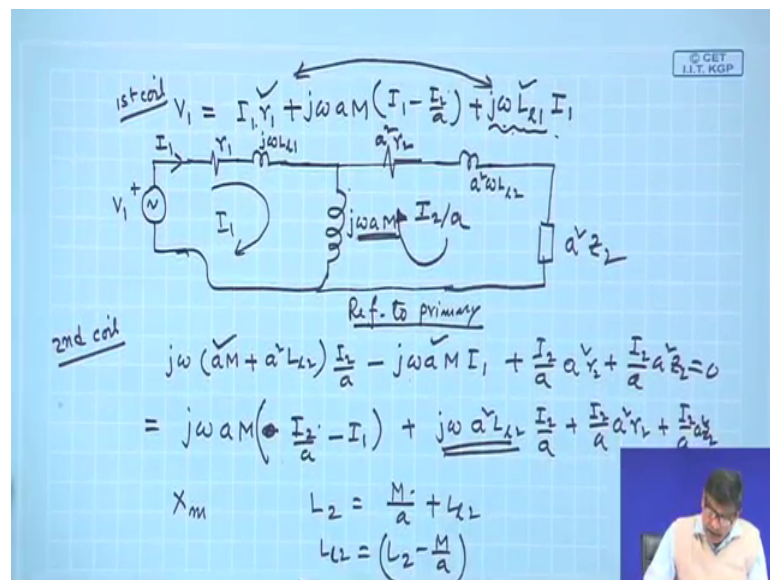 © CET
I.I.T. KGP
1st coil V₁ = I₁r₁ + jωaM(I₁ - I₂/a) + jωLₗ₁ I₁
I₁ r₁ jωLₗ₁ a²r₂ a²ωLₗ₂
V₁ + I₁ jωaM I₂/a a²Z₂
Ref. to primary
2nd coil
jω(aM + a²Lₗ₂) I₂/a - jωaM I₁ + I₂/a a²r₂ + I₂/a a²Z₂ = 0
= jωaM(I₂/a - I₁) + jωa²Lₗ₂ I₂/a + I₂/a a²r₂ + I₂/a a²Z₂
Xm L₂ = M/a + Lₗ₂
Lₗ₂ = (L₂ - M/a)